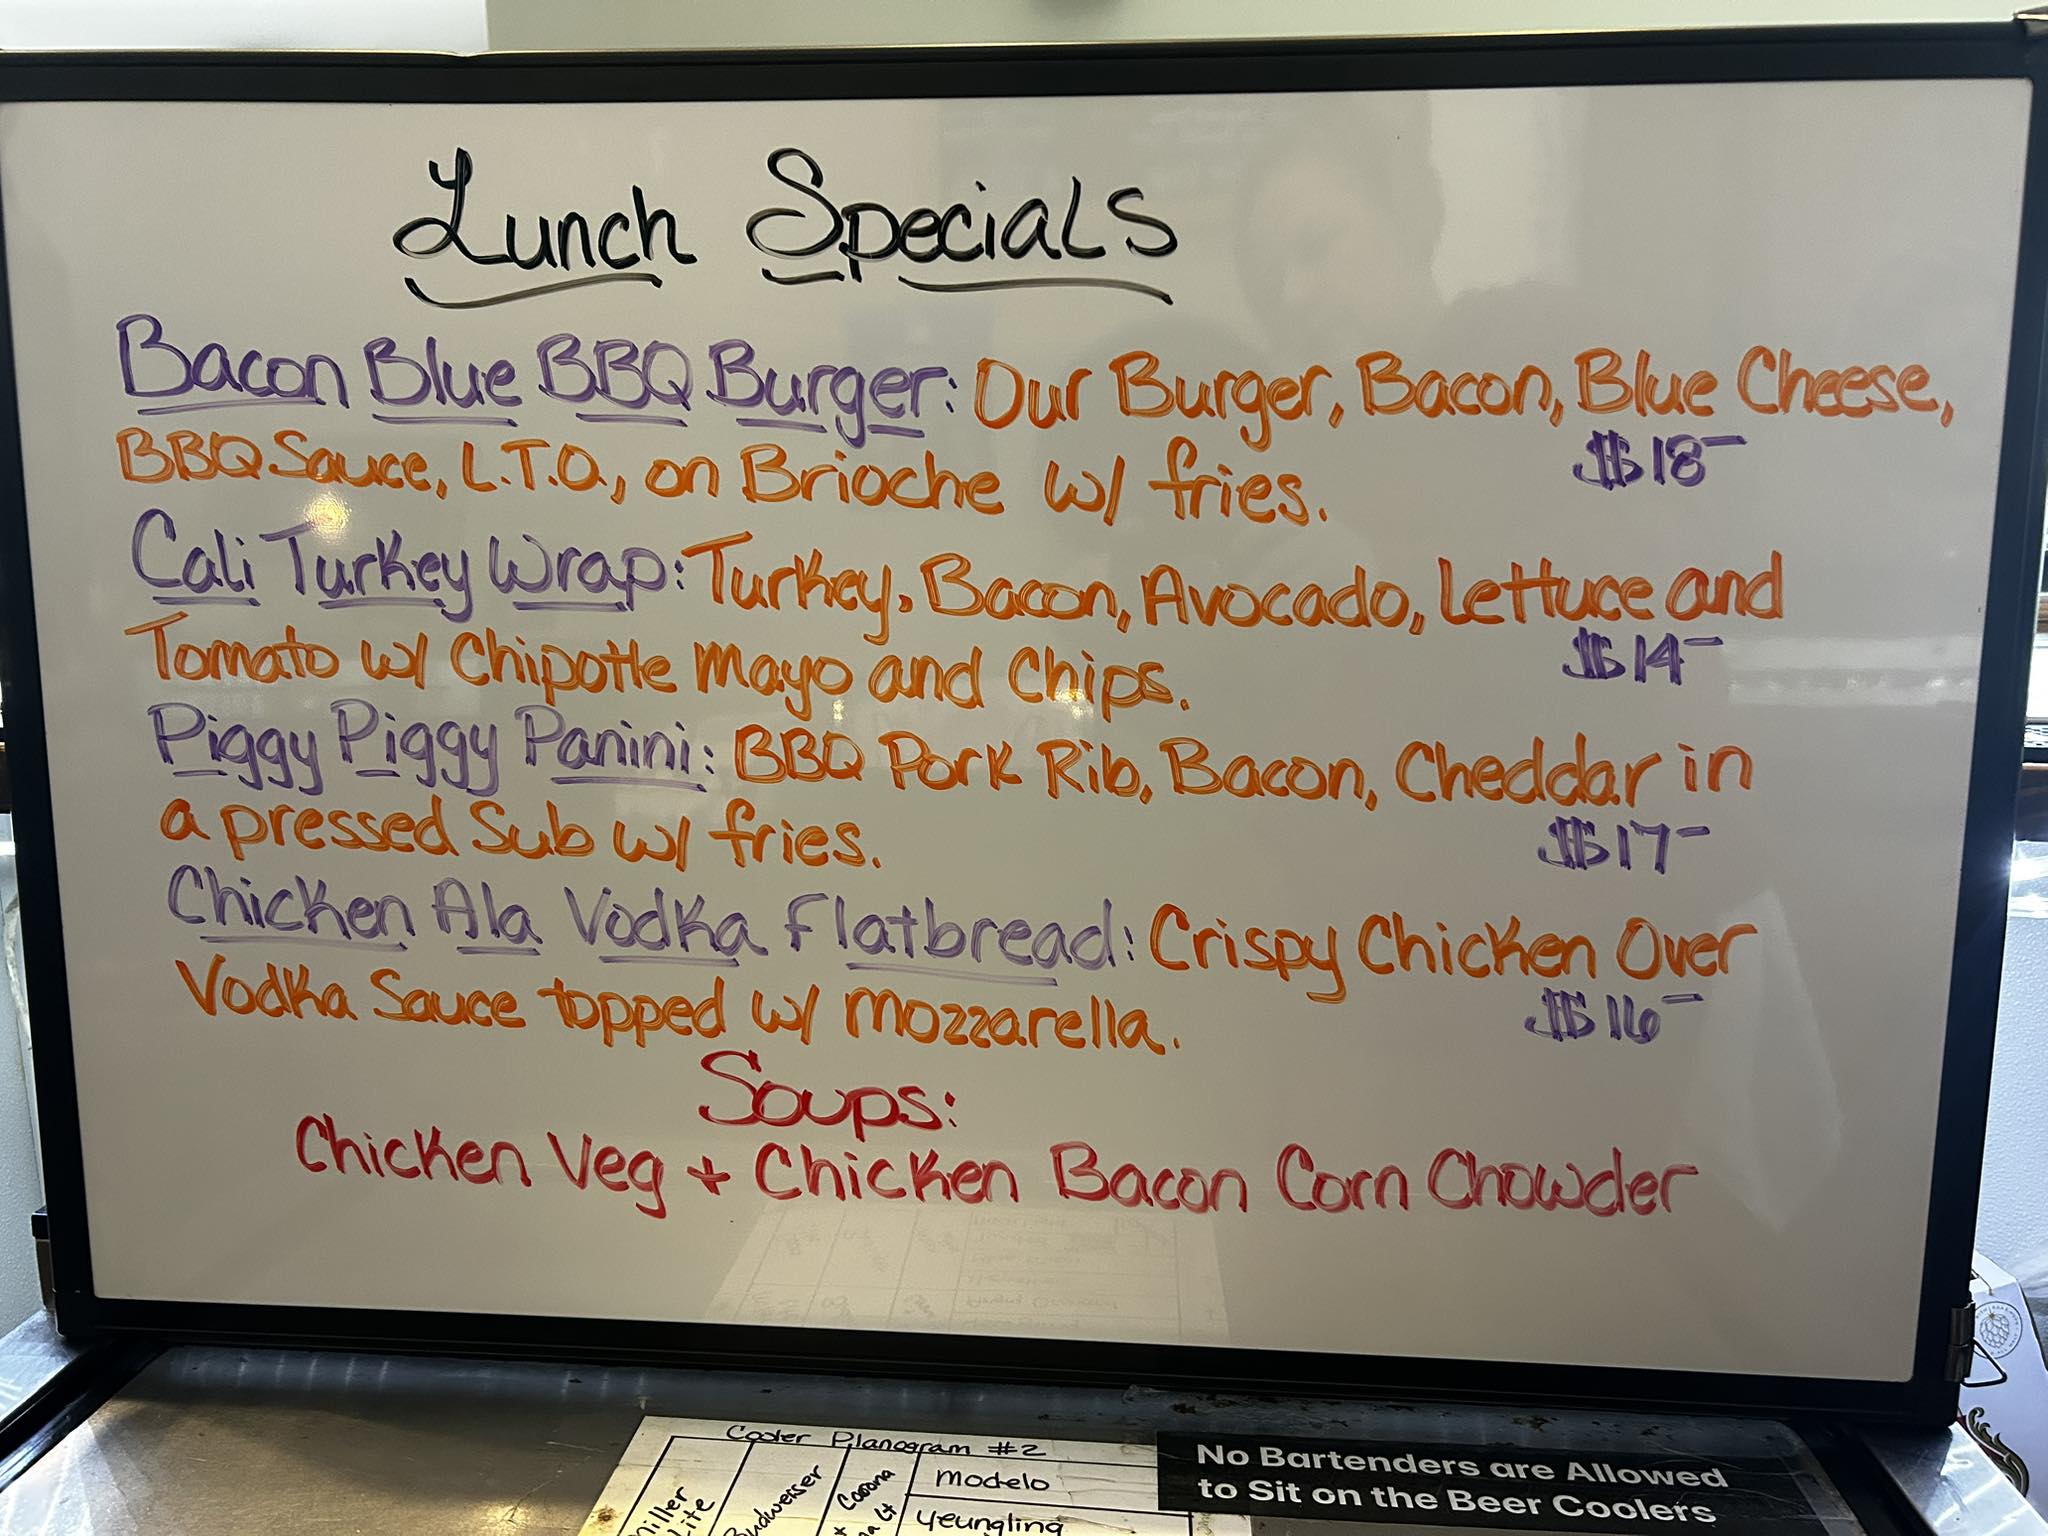 Lunch Specials
Bacon Blue BBQ Burger: Our Burger, Bacon, Blue Cheese,
BBQ Sauce, L.T.O., on Brioche w/ fries. $18-
Cali Turkey Wrap: Turkey, Bacon, Avocado, Lettuce and
Tomato w/ Chipotle Mayo and Chips. $14-
Piggy Piggy Panini: BBQ Pork Rib, Bacon, Cheddar in
a pressed Sub w/ fries. $17-
Chicken Ala Vodka Flatbread: Crispy Chicken Over
Vodka Sauce topped w/ Mozzarella. $16-
Soups:
Chicken Veg + Chicken Bacon Corn Chowder
Cooler Planogram #2
Miller
Lite
Budweiser
Corona
Lt
Modelo
Yeungling
No Bartenders are Allowed
to Sit on the Beer Coolers